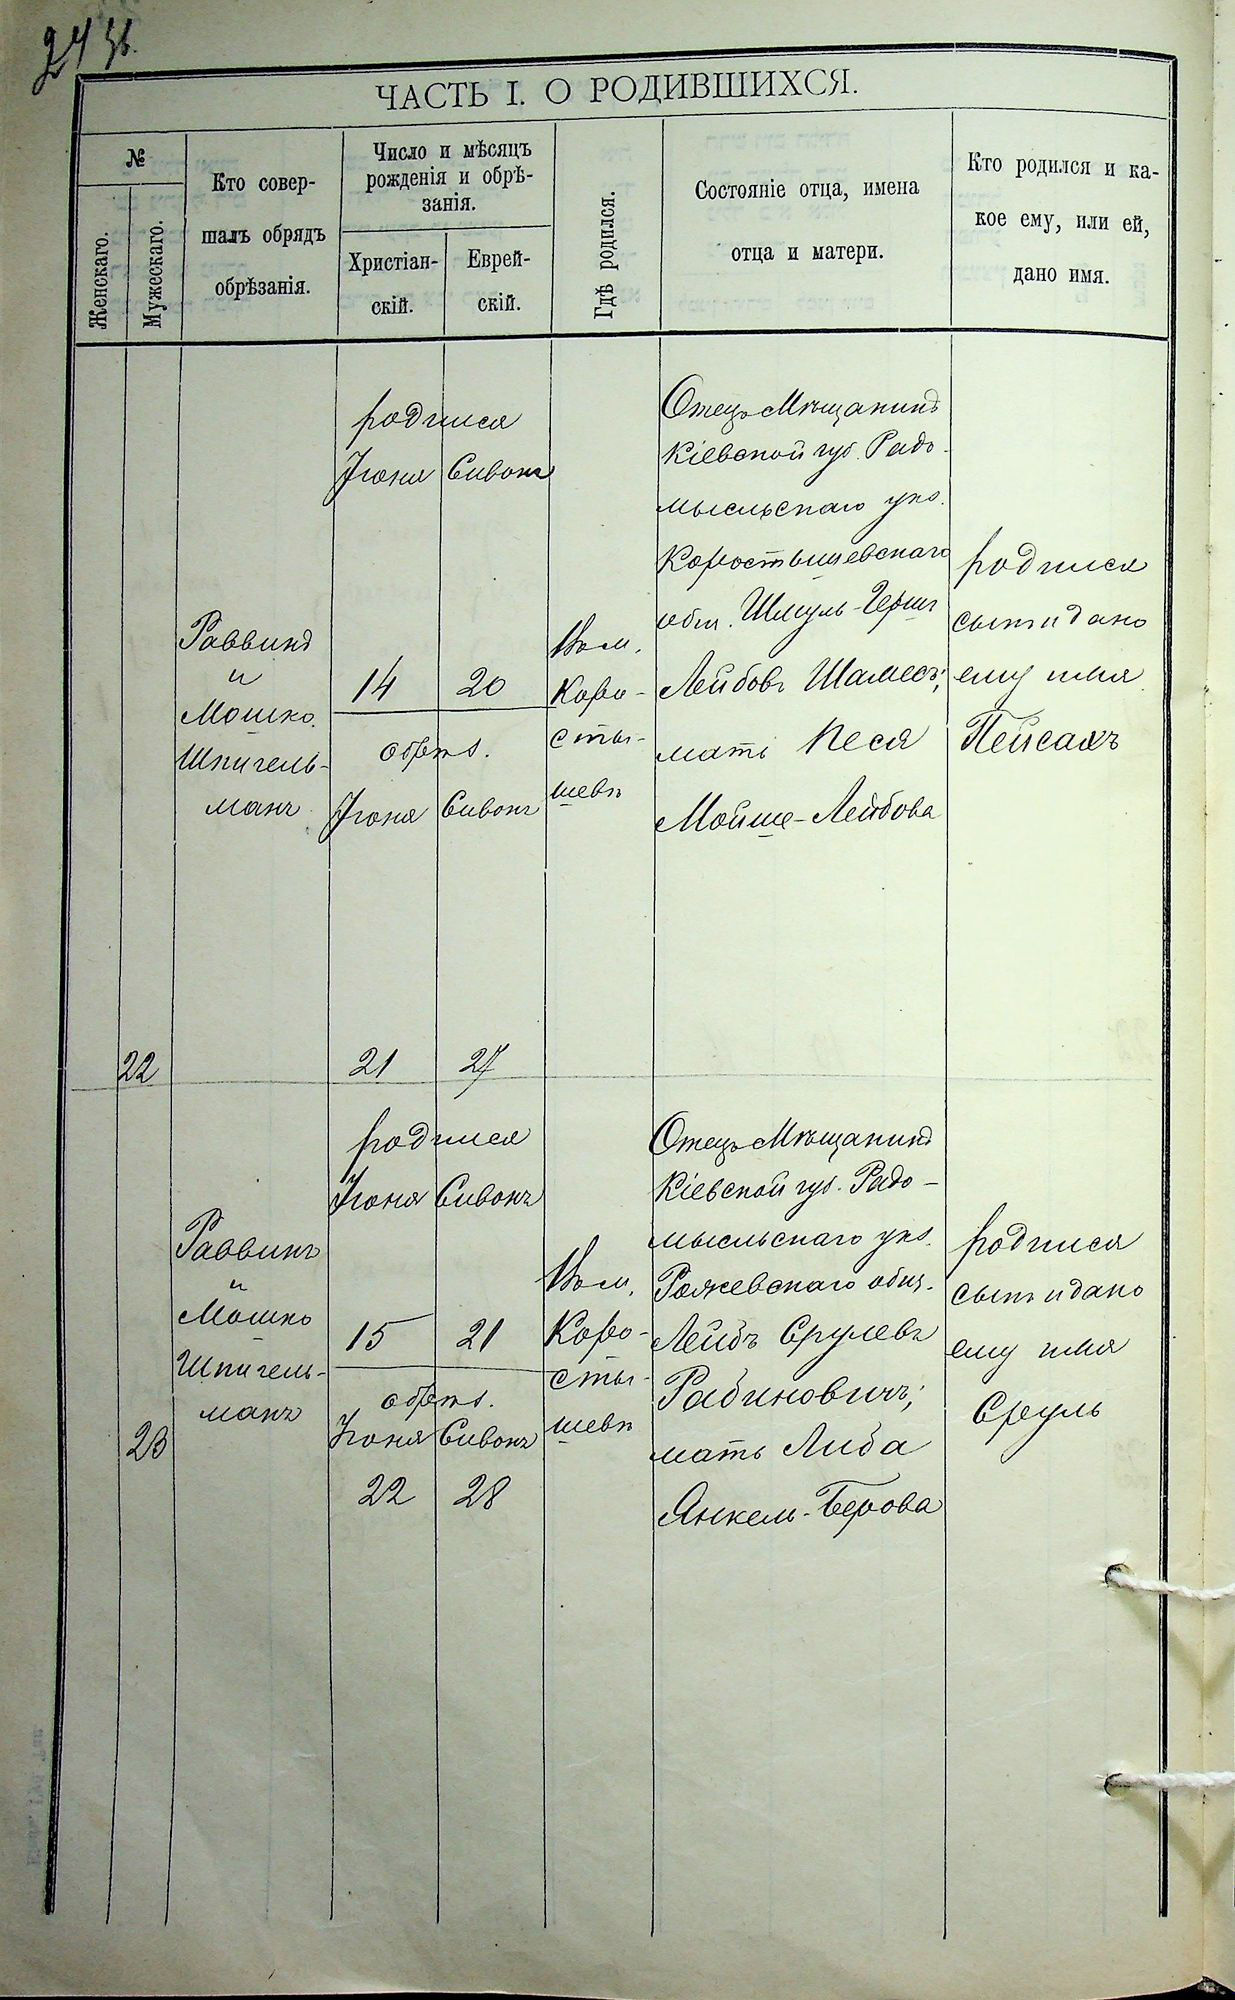 ЧАСТЬ I. О РОДИВШИХСЯ.
№
Женскаго.
Мужескаго.
Кто совер-
шалъ обрядъ
обрѣзанія.
Число и мѣсяцъ
рожденія и обрѣ-
занія.
Христіан-
скій.
Еврей-
скій.
Гдѣ родился.
Состояніе отца, имена
отца и матери.
Кто родился и ка-
кое ему, или ей,
дано имя.
22
Раввинъ
и
Мошко
Шпигель-
манъ
родился
Іюня Сивонъ
14 20
обрѣз.
Іюня Сивонъ
21 27
Въ м.
Коро-
сты-
шевѣ
Отецъ Мѣщанинъ
Кіевской губ. Радо-
мысльскаго уѣз.
Коростышевскаго
общ. Шмуль-Герш
Лейбовъ Шамесъ;
мать Песя
Мойше-Лейбова
родился
сынъ и дано
ему имя
Пейсахъ
23
Раввинъ
и
Мошко
Шпигель-
манъ
родился
Іюня Сивонъ
15 21
обрѣз.
Іюня Сивонъ
22 28
Въ м.
Коро-
сты-
шевѣ
Отецъ Мѣщанинъ
Кіевской губ. Радо-
мысльскаго уѣз.
Рожевскаго общ.
Лейбъ Срулевъ
Рабиновичъ;
мать Либа
Янкель-Берова
родился
сынъ и дано
ему имя
Сруль